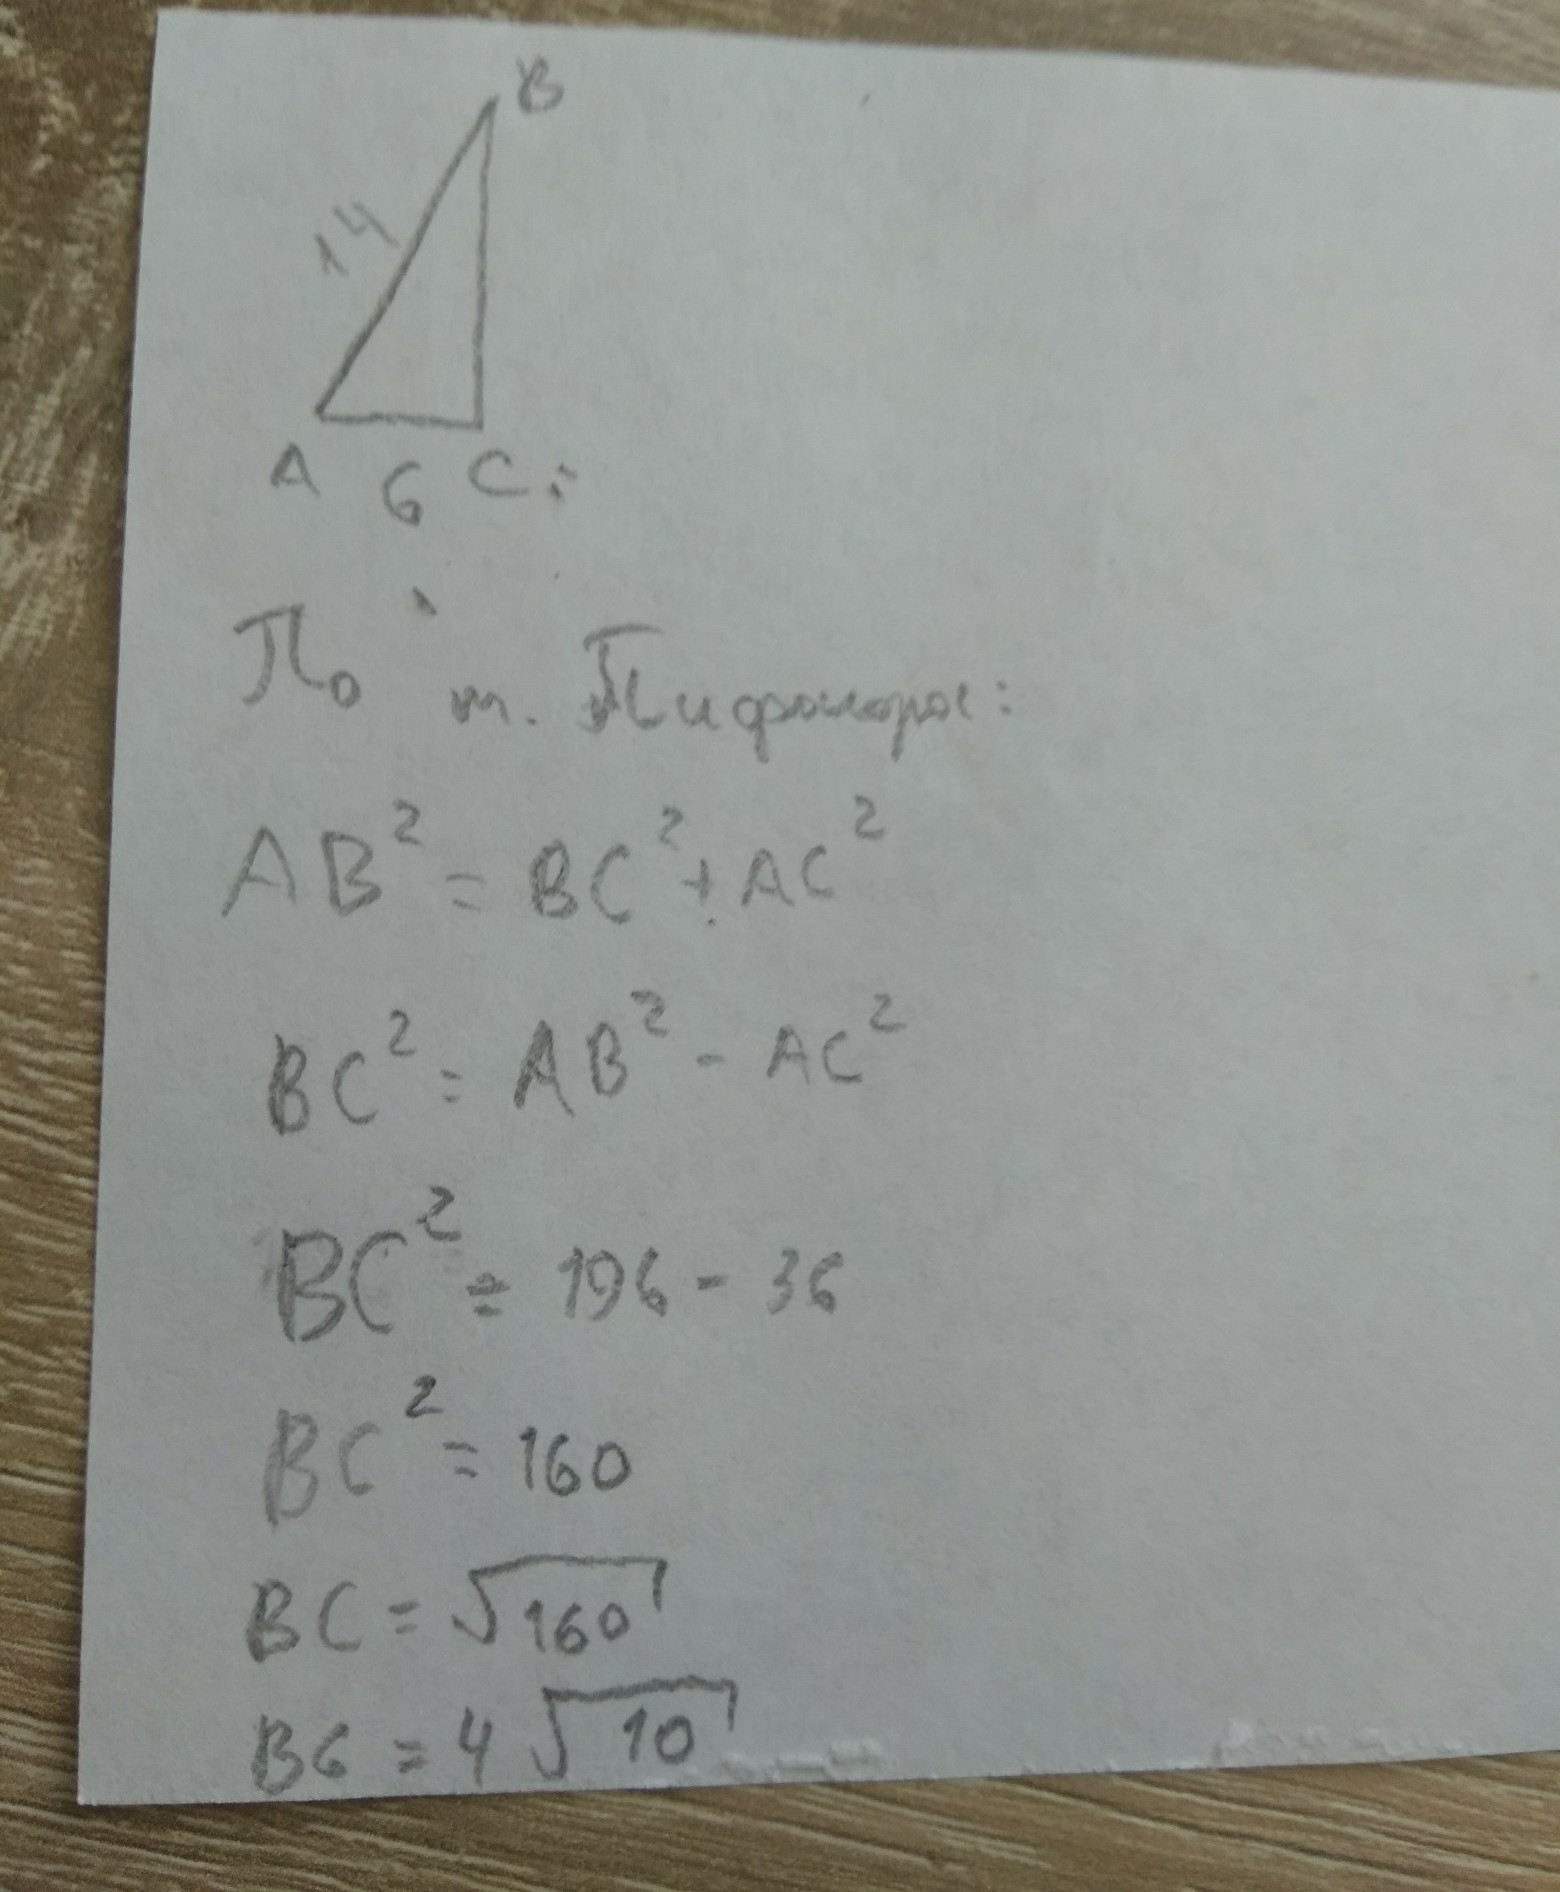 B
14
A 6 C
По т. Пифагора:
AB² = BC² + AC²
BC² = AB² - AC²
BC² = 196 - 36
BC² = 160
BC = √160
BC = 4√10